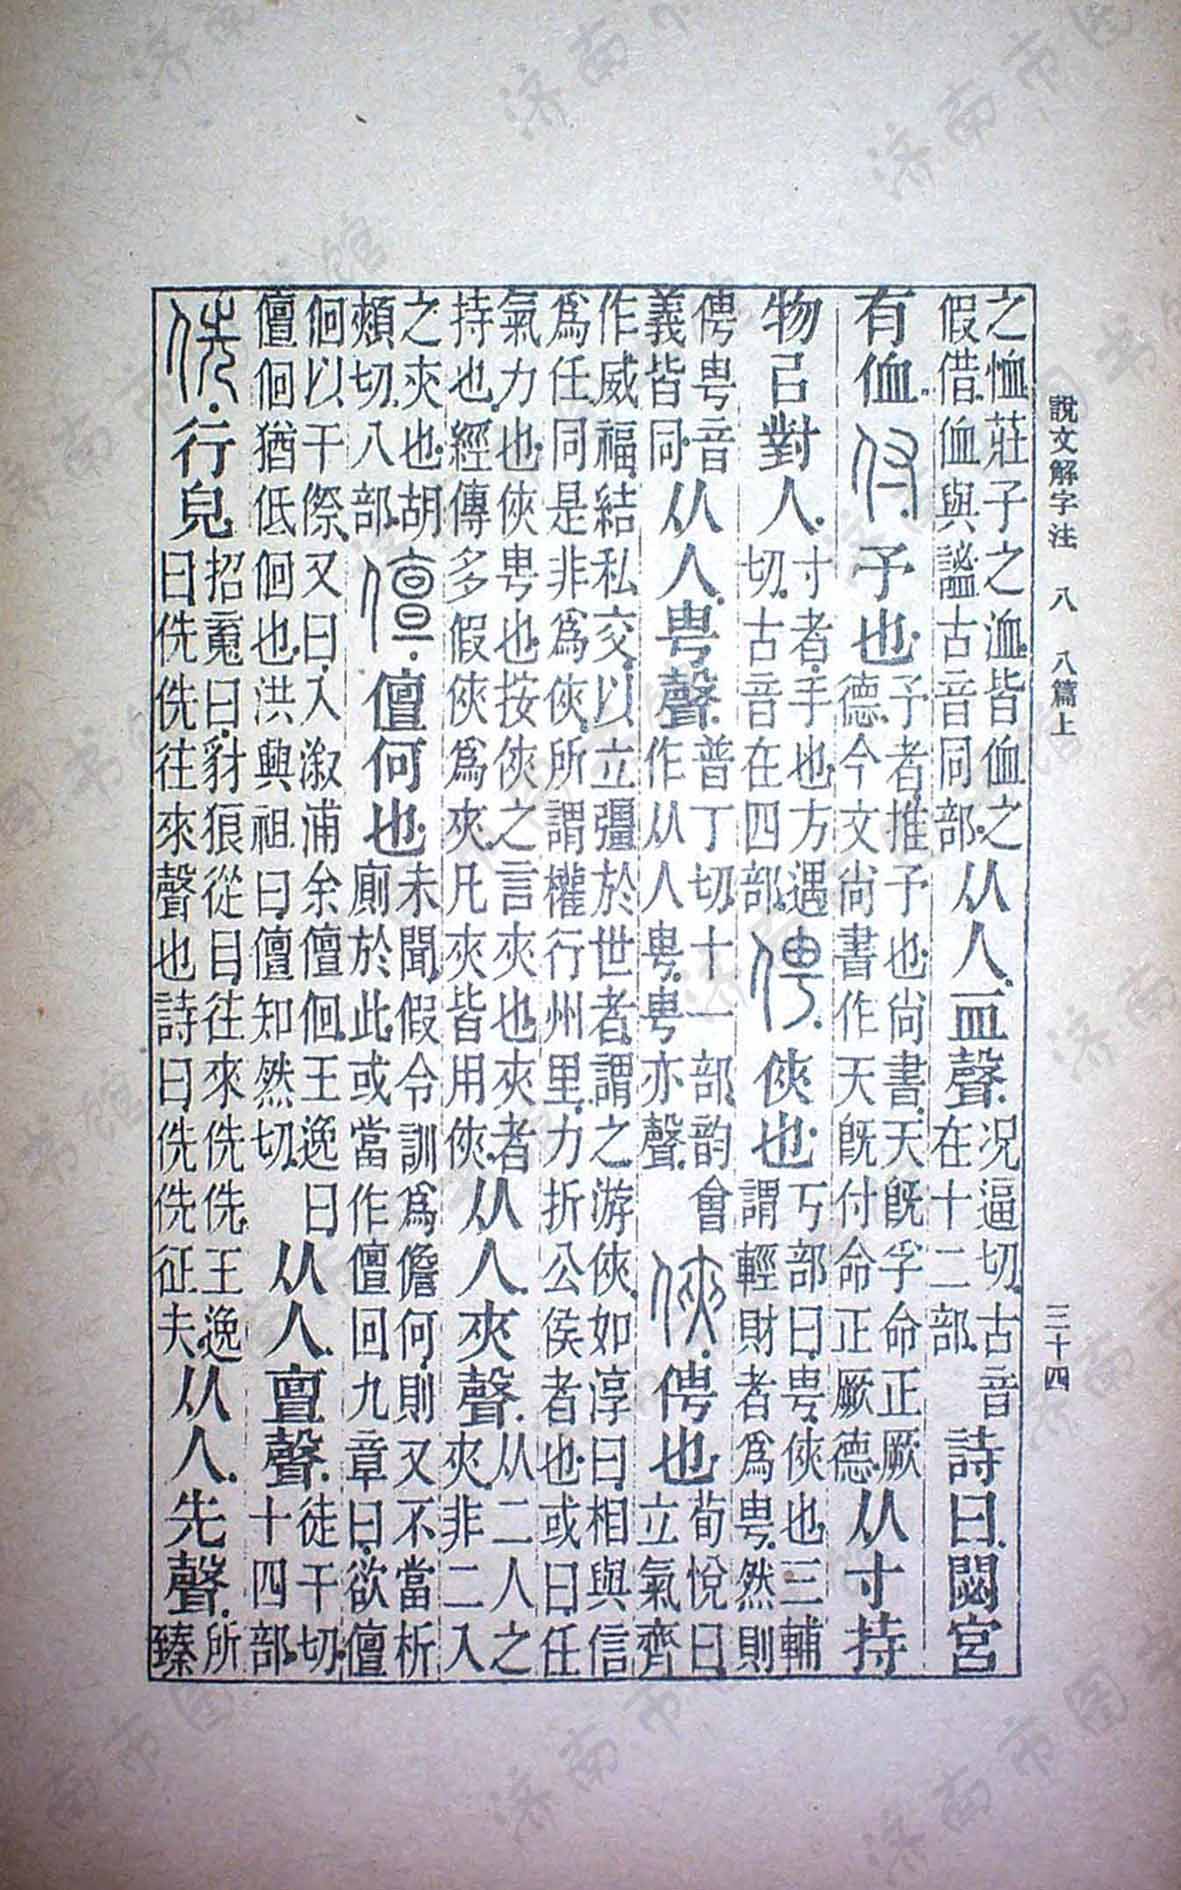 說文解字注 八 八篇上 三十四
之恤莊子之洫皆侐之假借侐與謐古音同部.从人.血聲.況逼切.古音在十二部.詩曰.閟宮
有侐付.予也.予者.推予也.尚書.天旣孚命正厥德.今文尚書作天旣付命正厥德.从寸持
物㠯對人.寸者.手也.方遇切.古音在四部.俜.俠也.丂部曰.甹.俠也.三輔謂輕財者爲甹.然則
俜甹音義皆同.从人.甹聲.普丁切.十一部.韵會作从人甹.甹亦聲.俠.俜也.荀悅曰.立氣齊
作威福.結私交.以立彊於世者.謂之游俠.如淳曰.相與信爲任.同是非爲俠.所謂權行州里.力折公侯者也.或曰.任
氣力也.俠甹也.按俠之言夾也.夾者.持也.經傳多假俠爲夾.凡夾皆用俠.从人.夾聲.从二人之夾.非二入
之夾也.胡頰切.八部.儃.儃何也.未聞.假令訓爲儋何.則又不當析廁於此.或當作儃回.九章曰.欲儃
佪以干傺.又曰.入漵浦余儃佪.王逸曰.儃佪猶低佪也.洪興祖曰.儃知然切.从人.亶聲.徒干切.十四部.
侁.行皃招䰟曰.豺狼從目.往來侁侁.王逸曰.侁侁往來聲也.詩曰.侁侁征夫.从人.先聲.所臻